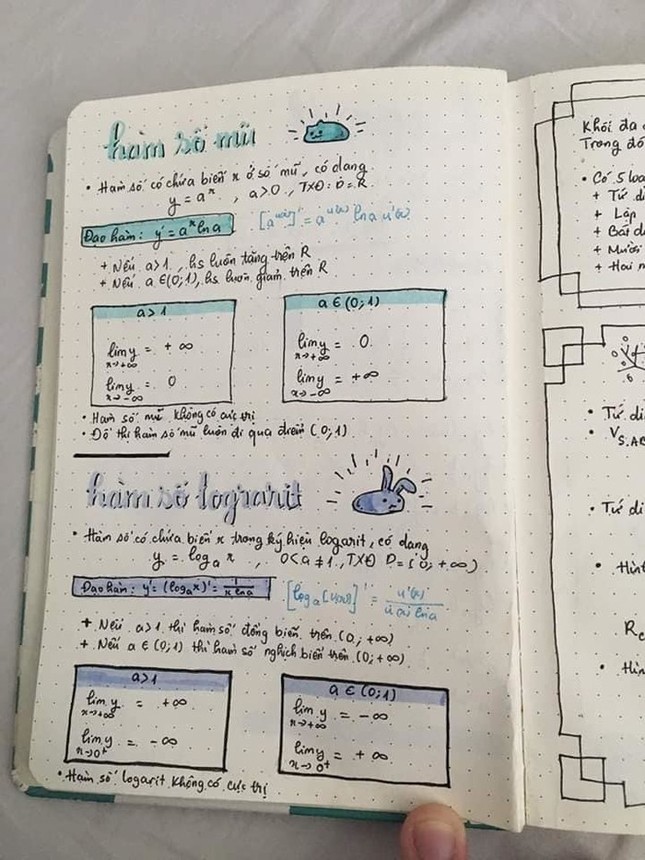 hàm số mũ
• Hàm số có chứa biến x ở số mũ, có dạng
y = aˣ , a>0 , TXĐ: D = R
Đạo hàm: y' = aˣ ln a
[a^u(x)]' = a^u(x) ln a u'(x)
+ Nếu a>1, hs luôn tăng trên R
+ Nếu a ∈ (0;1), hs luôn giảm trên R
a>1
lim y = +∞
x→+∞
lim y = 0
x→-∞
a ∈ (0;1)
lim y = 0
x→+∞
lim y = +∞
x→-∞
• Hàm số mũ không có cực trị
• Đồ thị hàm số mũ luôn đi qua điểm (0;1)
hàm số lograrit
• Hàm số có chứa biến x trong ký hiệu logarit, có dạng
y = logₐ x , 0<a≠1, TXĐ D=(0;+∞)
Đạo hàm: y' = (logₐx)' = 1/(x ln a)
[logₐ[u(x)]]' = u'(x)/(u(x) ln a)
+ Nếu a>1 thì hàm số đồng biến trên (0;+∞)
+ Nếu a ∈ (0;1) thì hàm số nghịch biến trên (0;+∞)
a>1
lim y = +∞
x→+∞
lim y = -∞
x→0⁺
a ∈ (0;1)
lim y = -∞
x→+∞
lim y = +∞
x→0⁺
• Hàm số logarit không có cực trị
Khối đa
Trong đó
• Có 5 loạ
+ Tứ di
+ Lập
+ Bát di
+ Mười
+ Hai m
• Tứ di
• V S.AB
• Tứ di
• Hình
• Hìn